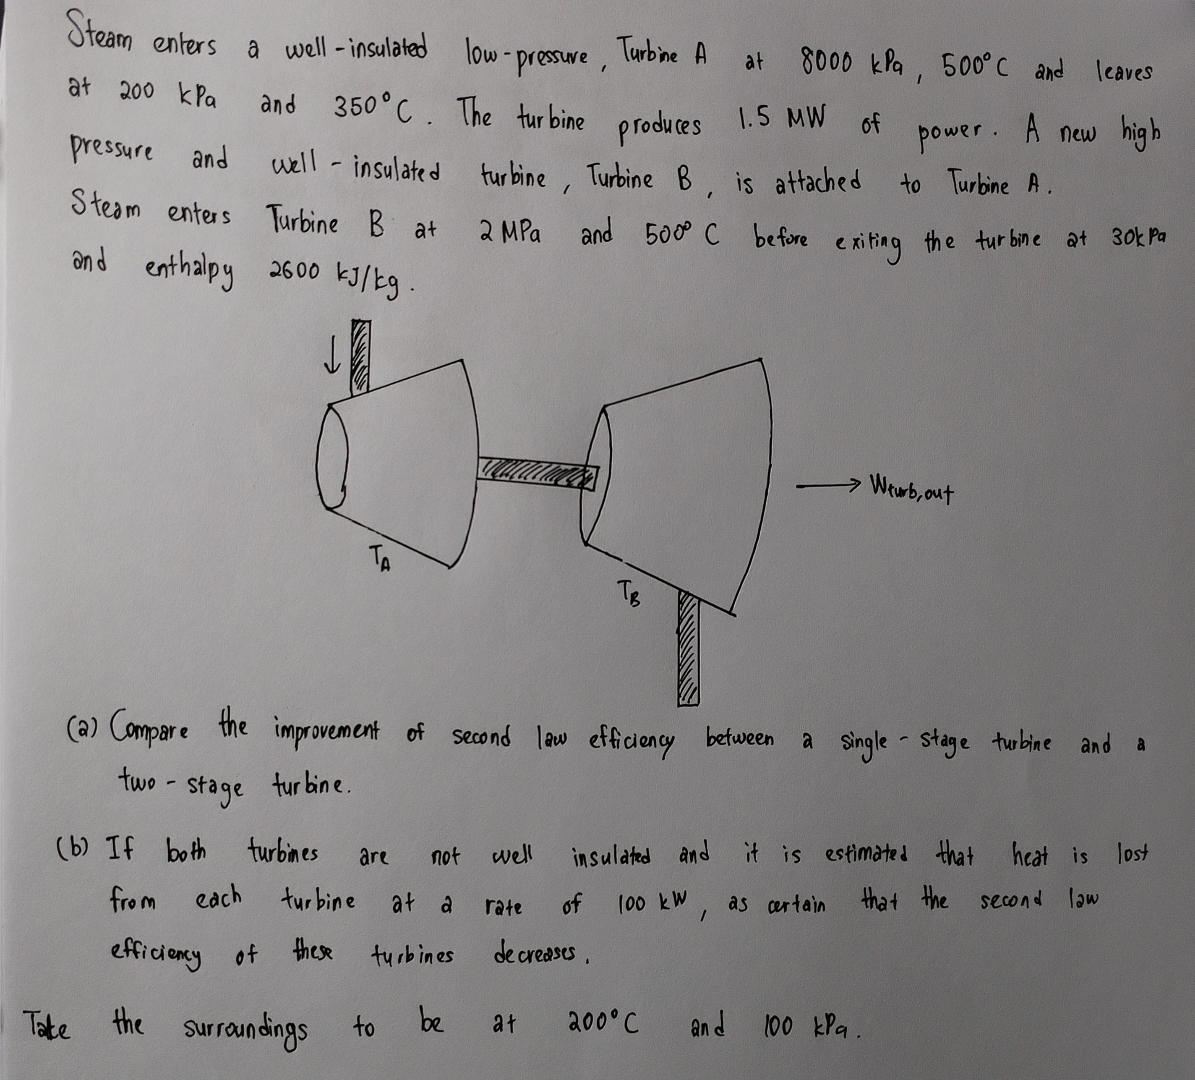 Steam enters a well-insulated low-pressure, Turbine A at 8000 kPa, 500°C and leaves
at 200 kPa and 350°C. The turbine produces 1.5 MW of power. A new high
pressure and well-insulated turbine, Turbine B, is attached to Turbine A.
Steam enters Turbine B at 2 MPa and 500° C before exiting the turbine at 30kPa
and enthalpy 2600 kJ/kg.
TA
TB
Wturb,out
(a) Compare the improvement of second law efficiency between a single-stage turbine and a
two-stage turbine.
(b) If both turbines are not well insulated and it is estimated that heat is lost
from each turbine at a rate of 100 kW, as certain that the second law
efficiency of these turbines decreases.
Take the surroundings to be at 200°C and 100 kPa.